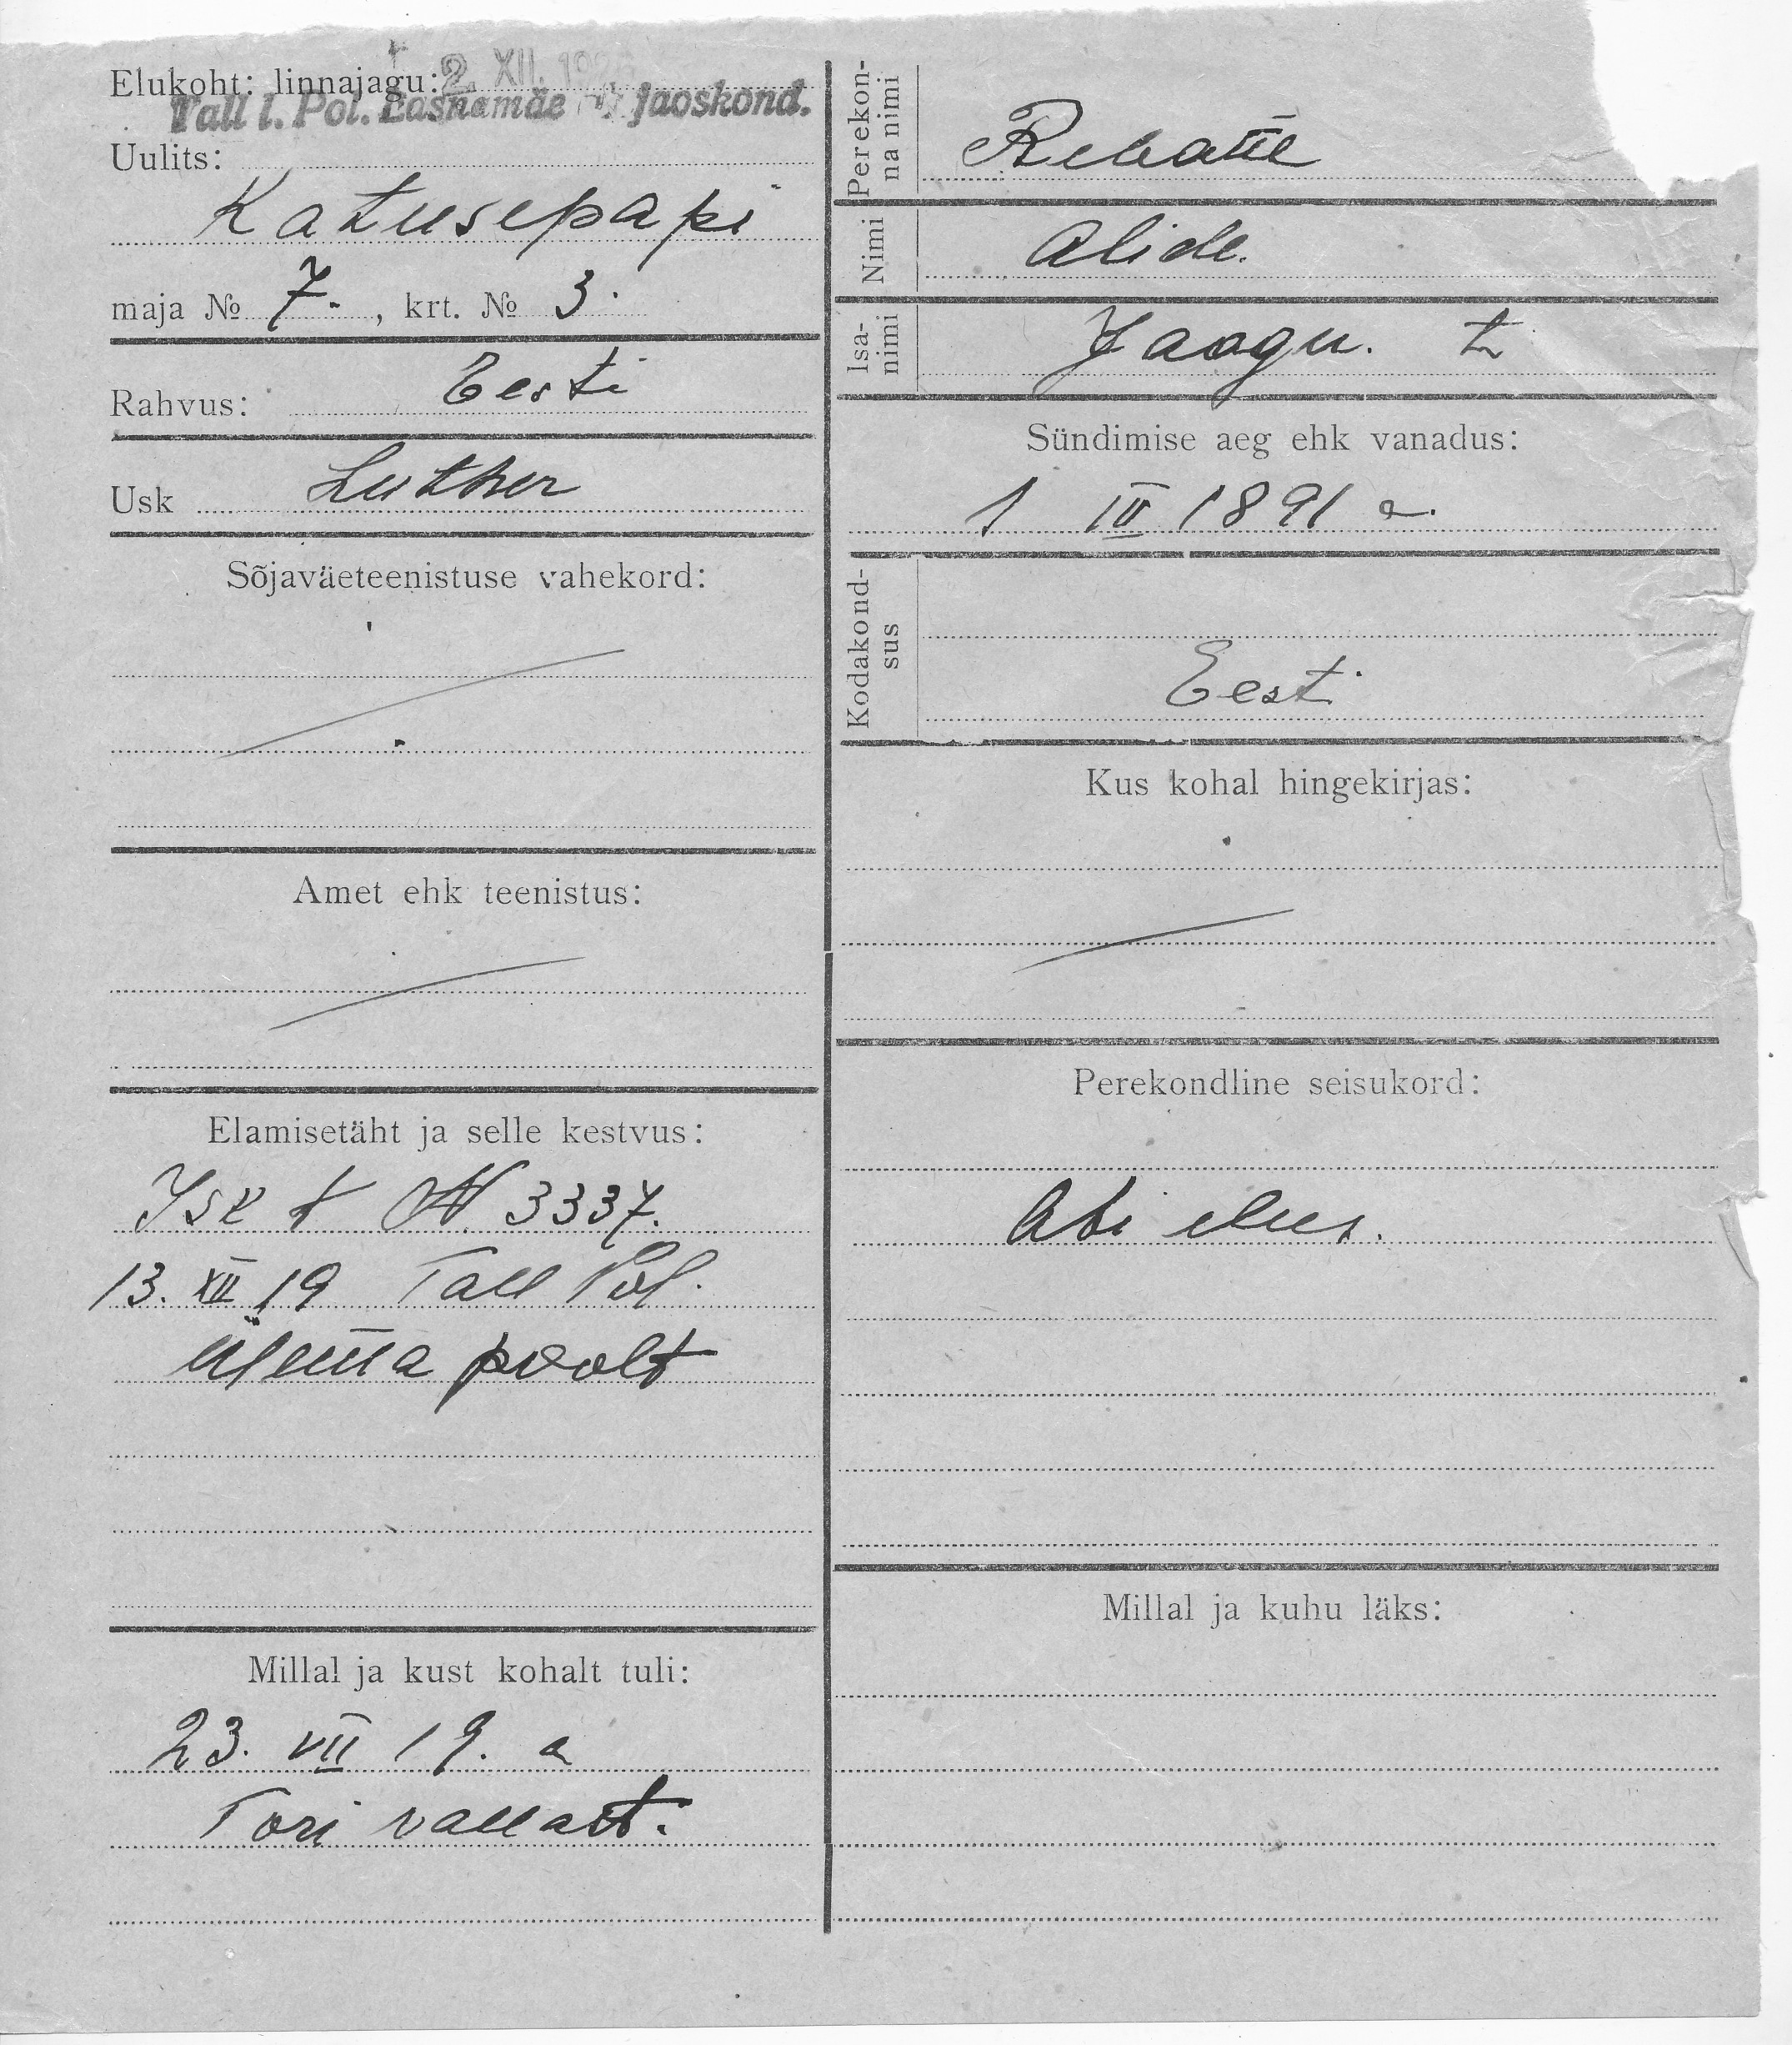 Elukoht: linnajagu:
2. XII. 192
Tall l. Pol. Lasnamäe jaoskond.
Uulits:
Katusepapi
maja № 7. , krt. № 3.
Rahvus: Eesti
Usk Luther
Sõjaväeteenistuse vahekord:
Amet ehk teenistus:
Elamisetäht ja selle kestvus:
Isk t № 3337.
13. XII 19 Tall Pol.
ülema poolt
Millal ja kust kohalt tuli:
23. VII 19. a
Tori vallast.
Perekon-
na nimi
Nimi Alide.
Isa-
nimi
Jaagu. t
Sündimise aeg ehk vanadus:
1 III 1891 a.
Kodakond-
sus
Eesti
Kus kohal hingekirjas:
Perekondline seisukord:
Abi elus.
Millal ja kuhu läks: